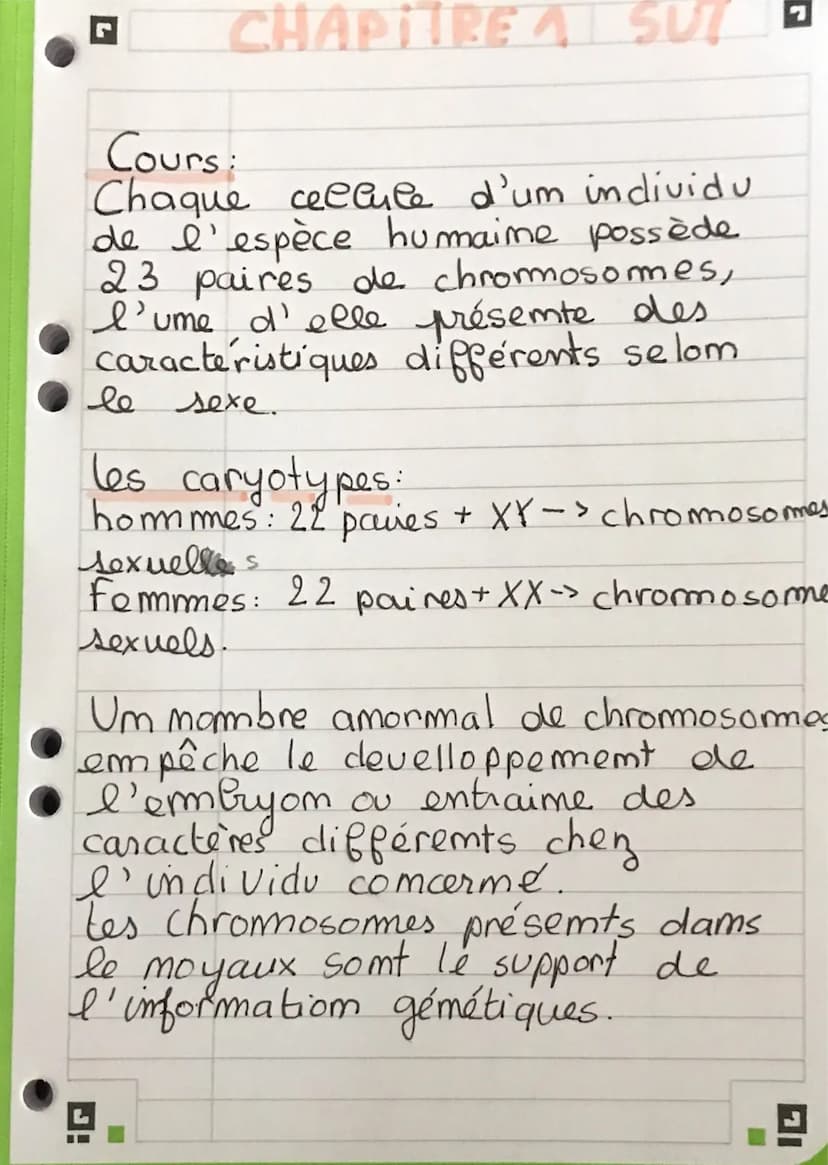 CHAPITRE 1 SVT
Cours:
Chaque cellule d'un individu
de l'espèce humaine possède
23 paires de chromosomes,
l'une d'elle présente des
caractéristiques différents selon
le sexe.
les caryotypes:
hommes: 22 paires + XY -> chromosomes
sexuells
femmes: 22 paires + XX -> chromosome
sexuels.
Un nombre anormal de chromosomes
empêche le develloppement de
l'embryon ou entraine des
caractères différents chez
l'individu concerné.
Les chromosomes présents dans
le noyaux sont le support de
l'information génétiques.